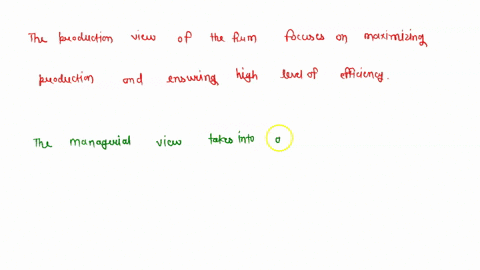 The production view of the firm focuses on maximizing
production and ensuring high level of efficiency.
The managerial view takes into a